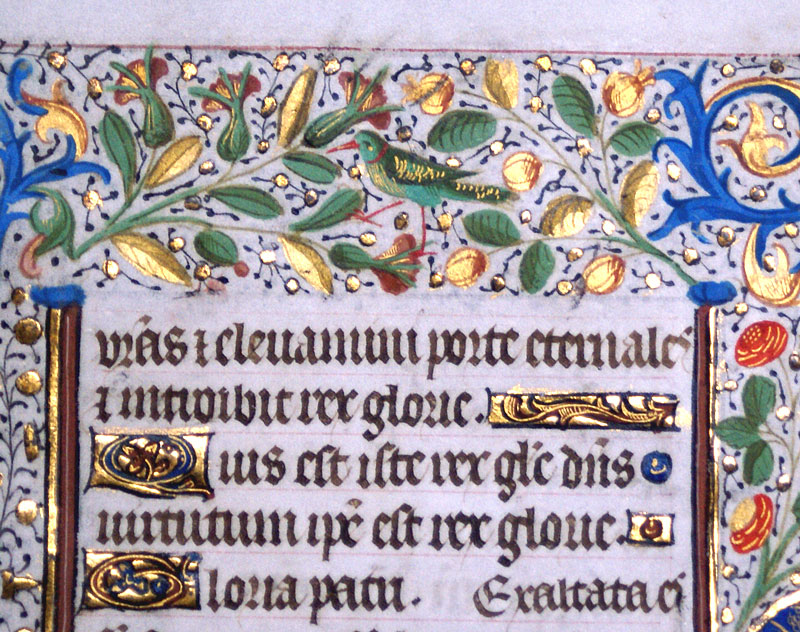 vr̃as ⁊ eleuamini porte eternales
⁊ introibit rex glorie.
Quis est iste rex glˀe dn̄s
uirtutum ip̄e est rex glorie.
Gloria patri. Exaltata es